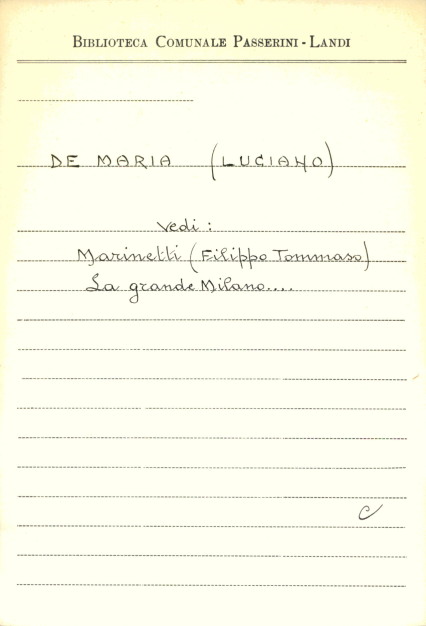 BIBLIOTECA COMUNALE PASSERINI - LANDI
DE MARIA (LUCIANO)
Vedi :
Marinetti (Filippo Tommaso)
La grande Milano....
C